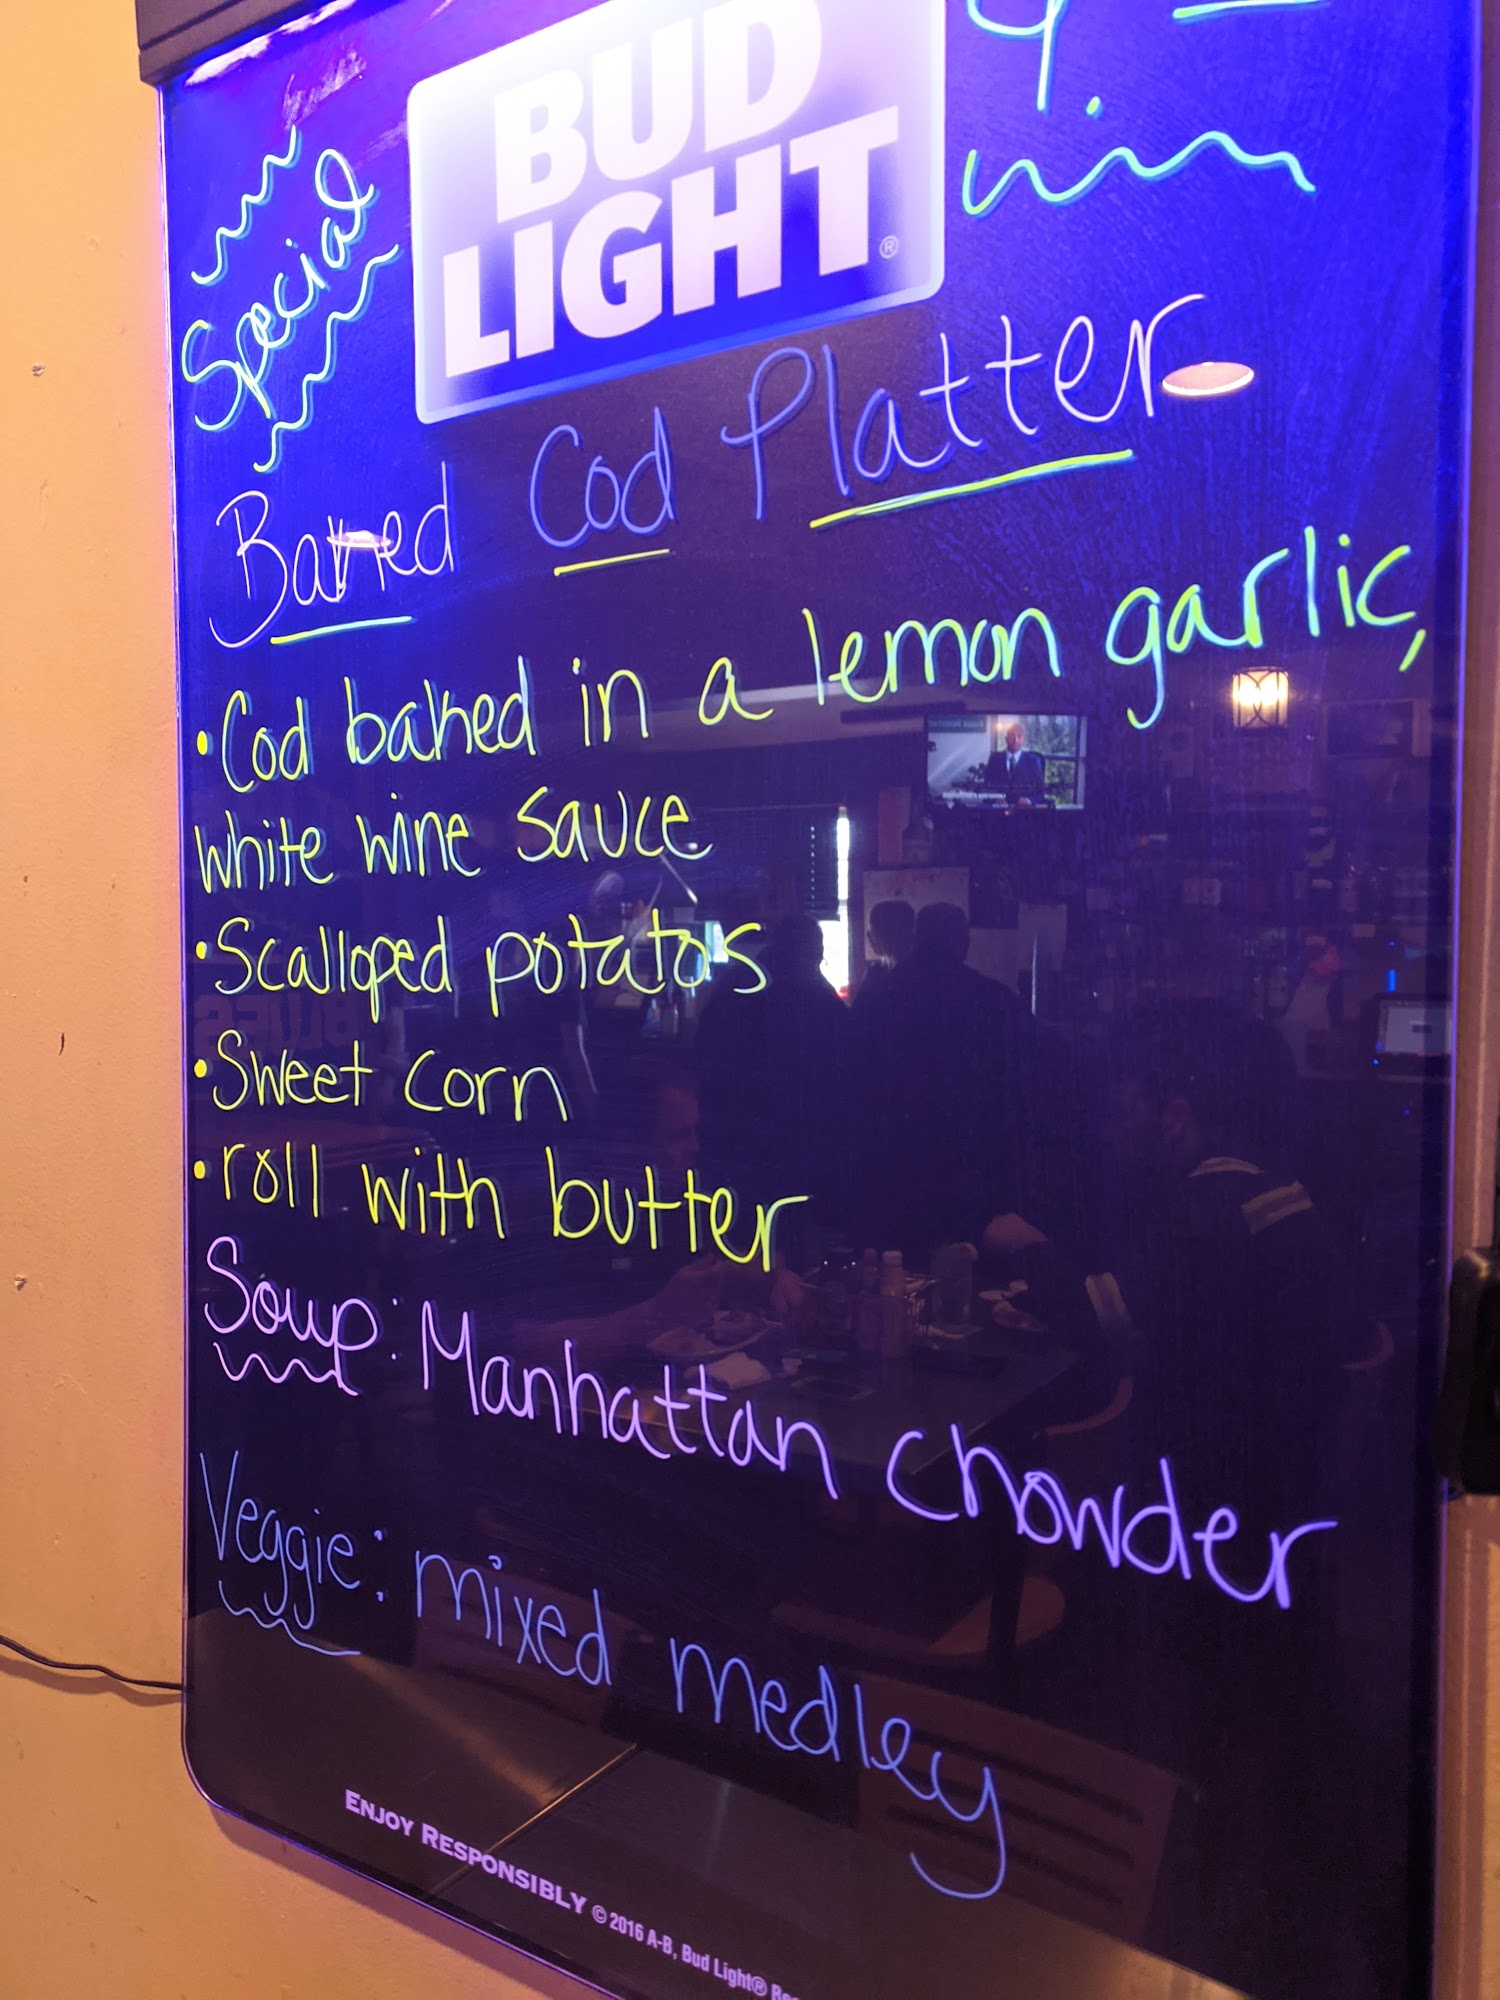 BUD
LIGHT®
Special
Baked Cod Platter
•Cod baked in a lemon garlic,
white wine sauce
•Scalloped potatos
•Sweet corn
•roll with butter
Soup: Manhattan chowder
Veggie: mixed medley
ENJOY RESPONSIBLY © 2016 A-B, Bud Light®